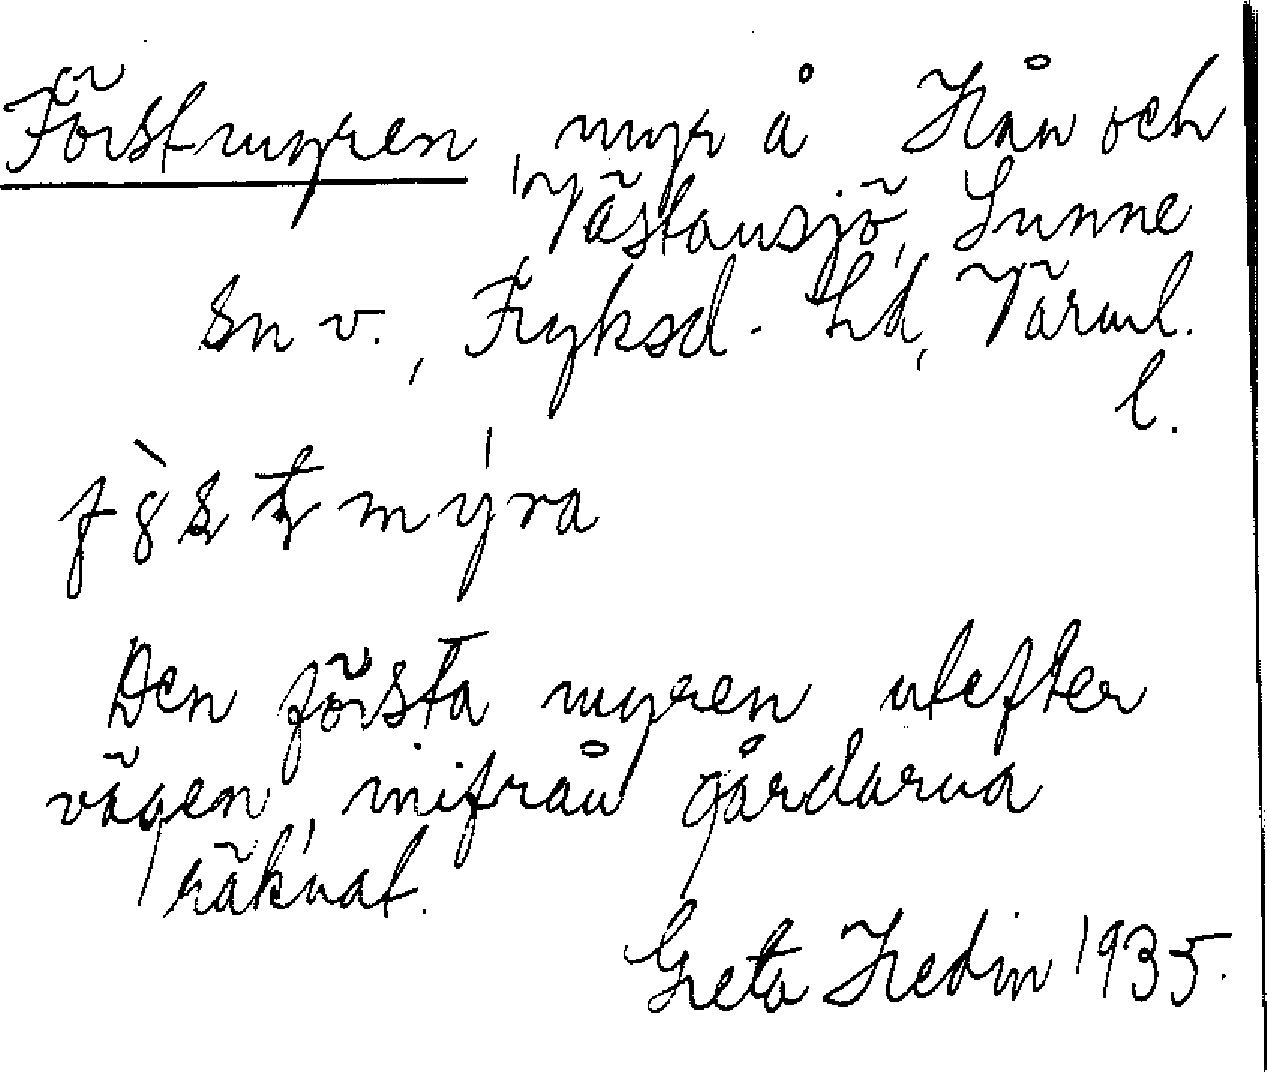 Förstmyren, myr å Hån och
Västansjö, Sunne
sn v., Fryksd. hd, Värml.
l.
Den första myren utefter
vägen, inifrån gårdarna
räknat.
Greta Hedin 1935.